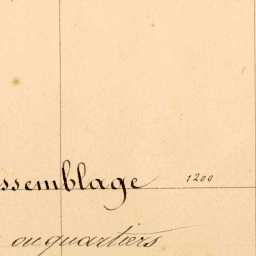 ssemblage 1200
ou quartiers